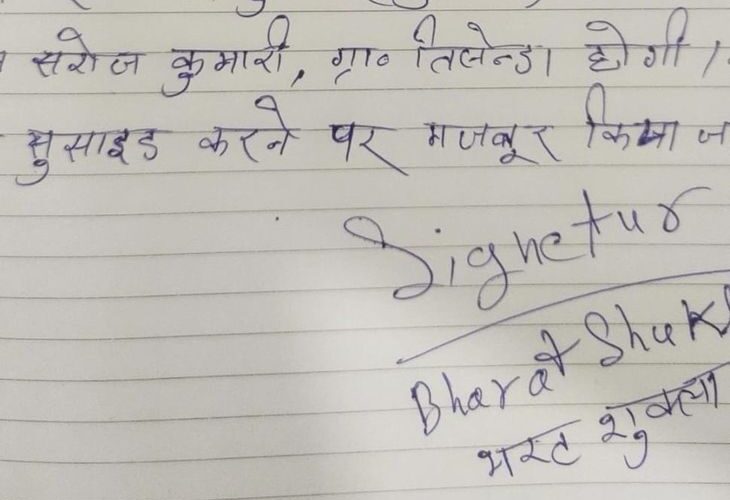 सरोज कुमारी, ग्रा० तिलेन्डा होगी।
सुसाइड करने पर मजबूर किया ज
Signetur
Bharat Shukl
भरत शुक्ला